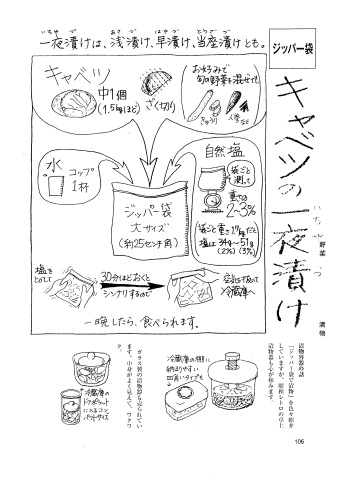 ジッパー袋
キャベツの一夜漬け
いちや づ
野菜
漬物
いちやづ あさづ はやづ とうざづ
一夜漬けは、浅漬け、早漬け、当座漬けとも。
キャベツ
中1個
(1.5kgほど)
ざく切り
お好みで
旬の野菜を混ぜても
きゅうり
人参など
水
コップ
1杯
ジッパー袋
大サイズ
(約25センチ角)
自然塩
袋ごと
測って
重さの
2~3%
袋ごと重さ1.7kgだと
塩は34g~51g
(2%) (3%)
塩を
とかして
30分ほどおくと
シンナリするので
空気を抜いて
冷蔵庫へ
一晩したら、食べられます。
漬物容器の話
「ジッパー袋で漬物」を色々紹介
していますが、昭和レトロの卓上
漬物器も心が和みます。
冷蔵庫の棚に
納まりやすい
四角いタイプも
ガラス製の漬物器も売られてい
ます。中身がよく見えて、ワクワ
ク。
冷蔵庫の
ドアポケット
に入るコン
パクトサイズ
106